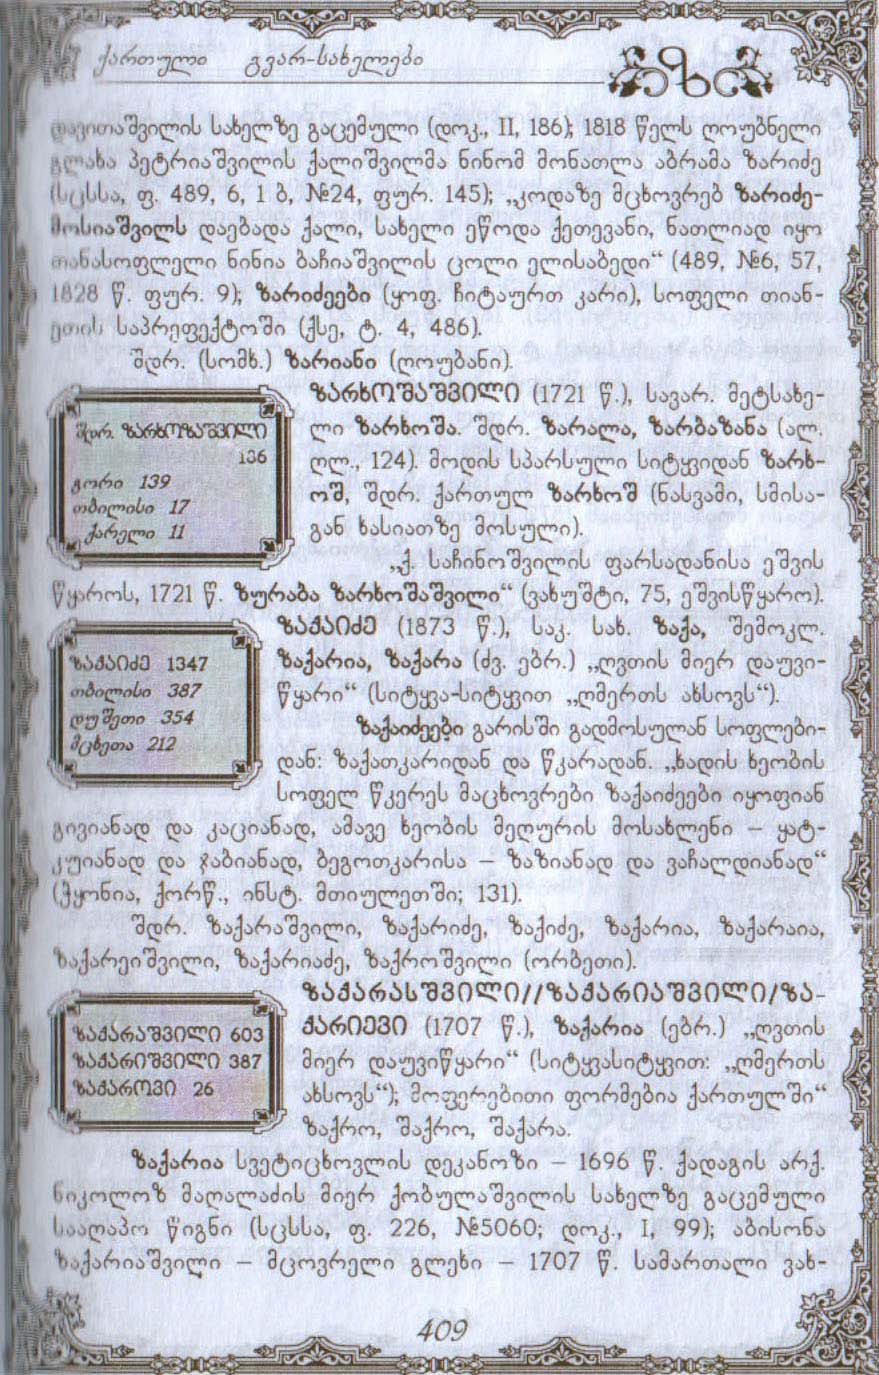 ქართული გვარ-სახელები
ზ
დავითაშვილის სახელზე გაცემული (დოკ., II, 186); 1818 წელს ღოუბნელი
გლახა პეტრიაშვილის ქალიშვილმა ნინომ მონათლა აბრამა ზარიძე
(სცსსა, ფ. 489, 6, 1 ბ, №24, ფურ. 145); „კოდაზე მცხოვრებ ზარიძე-
მოსიაშვილს დაებადა ქალი, სახელი ეწოდა ქეთევანი, ნათლიად იყო
თანასოფლელი ნინია ბაჩიაშვილის ცოლი ელისაბედი“ (489, №6, 57,
1828 წ. ფურ. 9); ზარიძეები (ყოფ. ჩიტაურთ კარი), სოფელი თიან-
ეთის საპრეფექტოში (ქსე, ტ. 4, 486).
შდრ. (სომხ.) ზარიანი (ღოუბანი).
ზარხოშაშვილი (1721 წ.), სავარ. მეტსახე-
ლი ზარხოშა. შდრ. ზარალა, ზარბაზანა (ალ.
ღლ., 124). მოდის სპარსული სიტყვიდან ზარხ-
ოშ, შდრ. ქართულ ზარხოშ (ნასვამი, სმისა-
გან ხასიათზე მოსული).
შდრ. ზარხოზაშვილი
136
გორი 139
თბილისი 17
ქარელი 11
„ქ. საჩინოშვილის ფარსადანისა ეშვის
წყაროს, 1721 წ. ზურაბა ზარხოშაშვილი“ (ვახუშტი, 75, ეშვისწყარო).
ზაქაიძე (1873 წ.), საკ. სახ. ზაქა, შემოკლ.
ზაქარია, ზაქარა (ძვ. ებრ.) „ღვთის მიერ დაუვი-
წყარი“ (სიტყვა-სიტყვით „ღმერთს ახსოვს“).
ზაქაიძე 1347
თბილისი 387
დუშეთი 354
მცხეთა 212
ზაქაიძეები გარისში გადმოსულან სოფლები-
დან: ზაქათკარიდან და წკარადან. „ხადის ხეობის
სოფელ წკერეს მაცხოვრები ზაქაიძეები იყოფიან
გივიანად და კაციანად, ამავე ხეობის მეღურის მოსახლენი – ყატ-
კუიანად და ჯაბიანად, ბეგოთკარისა – ზაზიანად და ვაჩალდიანად“
(ჭყონია, ქორწ., ინსტ. მთიულეთში; 131).
შდრ. ზაქარაშვილი, ზაქარიძე, ზაქიძე, ზაქარია, ზაქარაია,
ზაქარეიშვილი, ზაქარიაძე, ზაქროშვილი (ორბეთი).
ზაქარასშვილი//ზაქარიაშვილი/ზა-
ქარიევი (1707 წ.), ზაქარია (ებრ.) „ღვთის
მიერ დაუვიწყარი“ (სიტყვასიტყვით: „ღმერთს
ახსოვს“); მოფერებითი ფორმებია ქართულში“
ზაქრო, შაქრო, შაქარა.
ზაქარაშვილი 603
ზაქარიშვილი 387
ზაქაროვი 26
ზაქარია სვეტიცხოვლის დეკანოზი – 1696 წ. ქადაგის არქ.
ნიკოლოზ მაღალაძის მიერ ქობულაშვილის სახელზე გაცემული
სააღაპო წიგნი (სცსსა, ფ. 226, №5060; დოკ., I, 99); აბისონა
ზაქარიაშვილი – მცოვრელი გლეხი – 1707 წ. სამართალი ვახ-
409